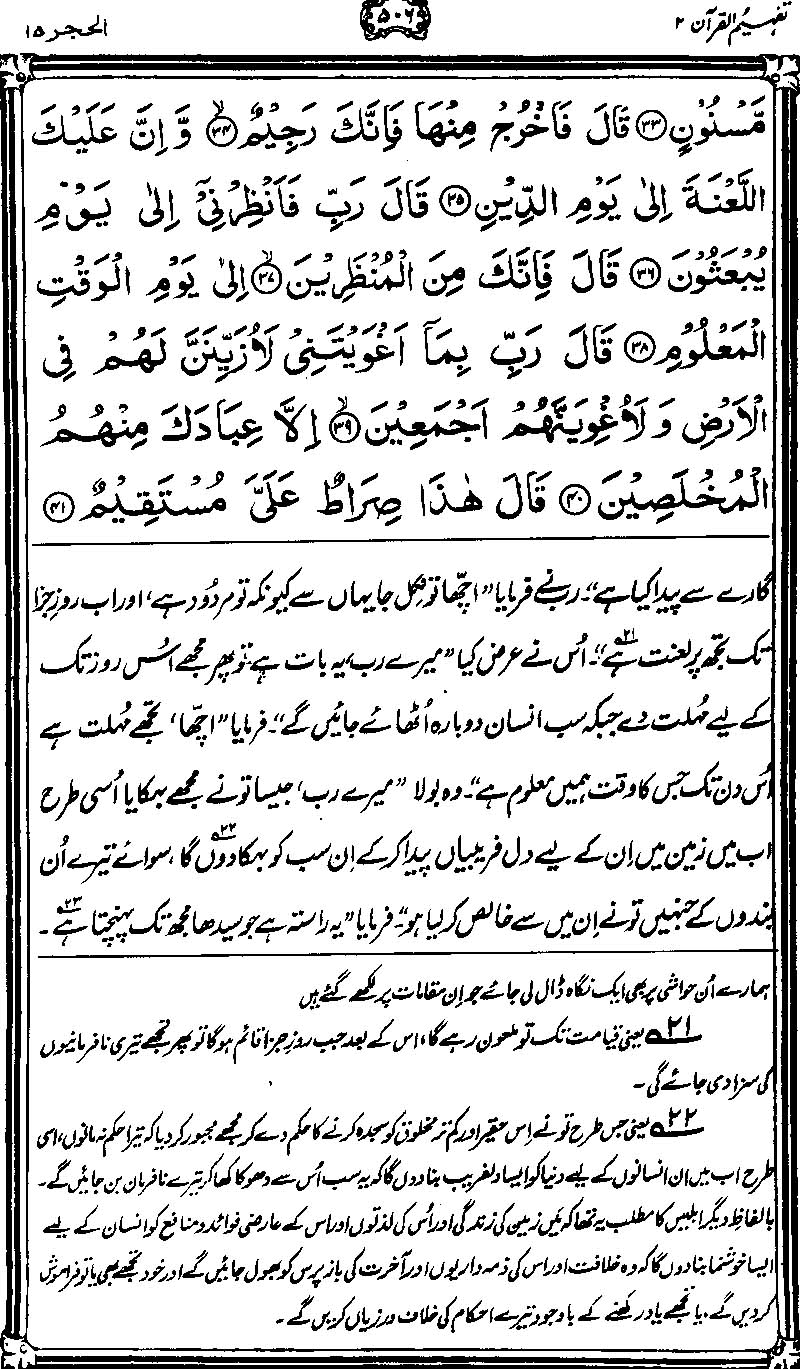 تفہیم القرآن ۲
۵۰۶
الحجر ۱۵
مَّسْنُوْنٍ ﴿۳۳﴾ قَالَ فَاخْرُجْ مِنْهَا فَاِنَّكَ رَجِيْمٌ ﴿۳۴﴾ وَّ اِنَّ عَلَيْكَ
اللَّعْنَةَ اِلٰى يَوْمِ الدِّيْنِ ﴿۳۵﴾ قَالَ رَبِّ فَاَنْظِرْنِيْٓ اِلٰى يَوْمِ
يُبْعَثُوْنَ ﴿۳۶﴾ قَالَ فَاِنَّكَ مِنَ الْمُنْظَرِيْنَ ﴿۳۷﴾ اِلٰى يَوْمِ الْوَقْتِ
الْمَعْلُوْمِ ﴿۳۸﴾ قَالَ رَبِّ بِمَآ اَغْوَيْتَنِيْ لَاُزَيِّنَنَّ لَهُمْ فِي
الْاَرْضِ وَ لَاُغْوِيَنَّهُمْ اَجْمَعِيْنَ ﴿۳۹﴾ اِلَّا عِبَادَكَ مِنْهُمُ
الْمُخْلَصِيْنَ ﴿۴۰﴾ قَالَ هٰذَا صِرَاطٌ عَلَيَّ مُسْتَقِيْمٌ ﴿۴۱﴾
گارے سے پیدا کیا ہے“۔ رب نے فرمایا ”اچھا تو نکل جا یہاں سے کیونکہ تو مردُود ہے، اور اب روزِ جزا
تک تجھ پر لعنت ہے۲۱“۔ اُس نے عرض کیا ”میرے رب، یہ بات ہے تو پھر مجھے اُس روز تک
کے لیے مُہلت دے جبکہ سب انسان دوبارہ اُٹھائے جائیں گے“۔ فرمایا ”اچھا، تجھے مُہلت ہے
اُس دن تک جس کا وقت ہمیں معلوم ہے“۔ وہ بولا ”میرے رب، جیسا تو نے مجھے بہکایا اُسی طرح
اب میں زمین میں اِن کے لیے دل فریبیاں پیدا کر کے اِن سب کو بہکا دوں گا۲۲، سوائے تیرے اُن
بندوں کے جنہیں تو نے اِن میں سے خالص کر لیا ہو“۔ فرمایا ”یہ راستہ ہے جو سیدھا مجھ تک پہنچتا ہے۲۳۔
ہمارے اُن حواشی پر بھی ایک نگاہ ڈال لی جائے جو اِن مقامات پر لکھے گئے ہیں
۲۱ یعنی قیامت تک تو ملعون رہے گا، اس کے بعد جب روزِ جزا قائم ہوگا تو پھر تجھے تیری نافرمانیوں
کی سزا دی جائے گی۔
۲۲ یعنی جس طرح تو نے اِس حقیر اور کم تر مخلوق کو سجدہ کرنے کا حکم دے کر مجھے مجبور کر دیا کہ تیرا حکم نہ مانوں، اسی
طرح اب میں ان انسانوں کے لیے دنیا کو ایسا دلفریب بنا دوں گا کہ یہ سب اُس سے دھوکا کھا کر تیرے نافرمان بن جائیں گے۔
بالفاظِ دیگر ابلیس کا مطلب یہ تھا کہ میں زمین کی زندگی اور اُس کی لذتوں اور اس کے عارضی فوائد و منافع کو انسان کے لیے
ایسا خوشنما بنا دوں گا کہ وہ خلافت اور اس کی ذمہ داریوں اور آخرت کی باز پرس کو بھول جائیں گے اور خود تجھے بھی یا تو فراموش
کر دیں گے، یا تجھے یاد رکھنے کے باوجود تیرے احکام کی خلاف ورزیاں کریں گے۔